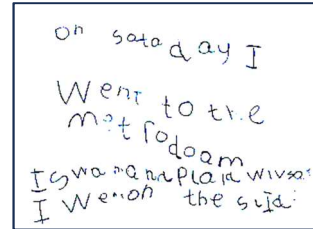 on sata day I
Went to the
metrodoam
I swam and plaid
I Went on the slid